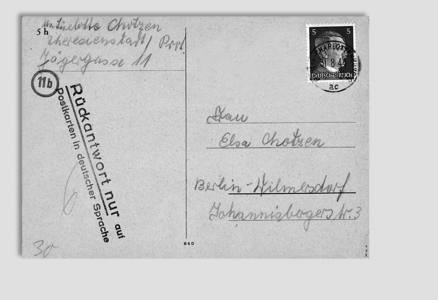 5 h
Chotzen
Theresienstadt/ Prot
Jägergasse 11
11b
Rückantwort nur auf
Postkarten in deutscher Sprache
5 5
DEUTSCHES REICH
ac
Frau
Elsa Chotzen
Berlin-Wilmersdorf
Johannisbergerstr. 3
30